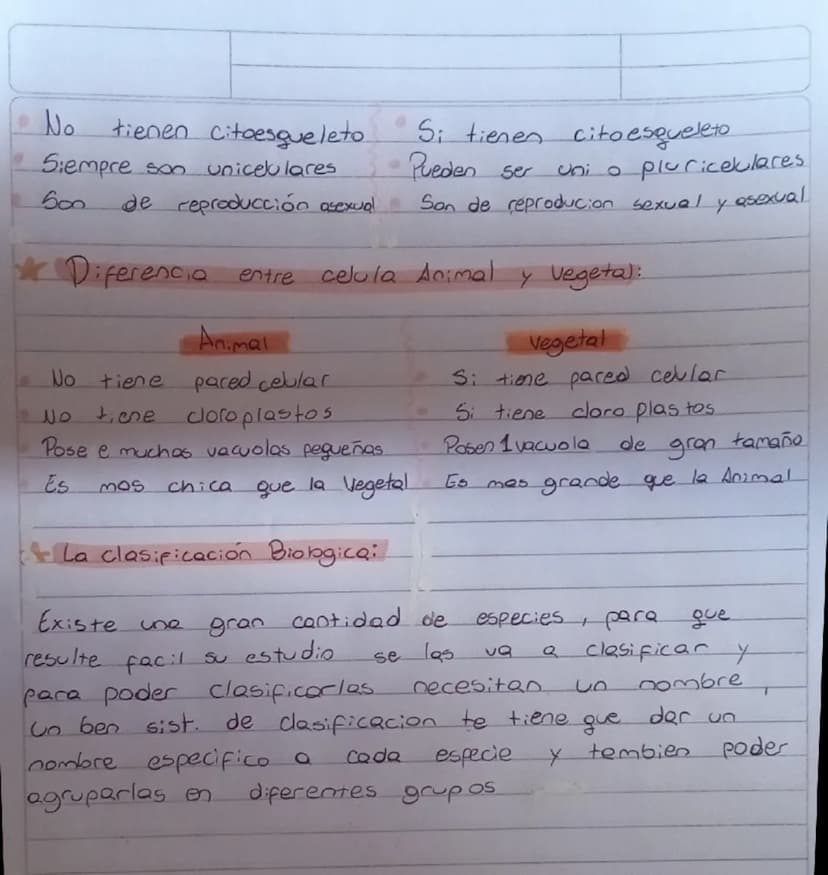 No tienen citoesqueleto Si tienen citoesqueleto
Siempre son unicelulares Pueden ser uni o pluricelulares
Son de reproducción asexual Son de reproducion sexual y asexual
Diferencia entre celula Animal y vegetal:
Animal vegetal
No tiene pared celular Si tiene pared celular
No tiene cloroplastos Si tiene cloro plastos
Pose e muchas vacuolas pequeñas Posen 1 vacuola de gran tamaño
Es mas chica que la Vegetal Es mas grande que la Animal
La clasificación Biologica:
Existe una gran cantidad de especies, para que
resulte facil su estudio se las va a clasificar y
para poder clasificarlas necesitan un nombre,
un ben sist. de clasificacion te tiene que dar un
nombre especifico a cada especie y tembien poder
agruparlas en diferentes grupos